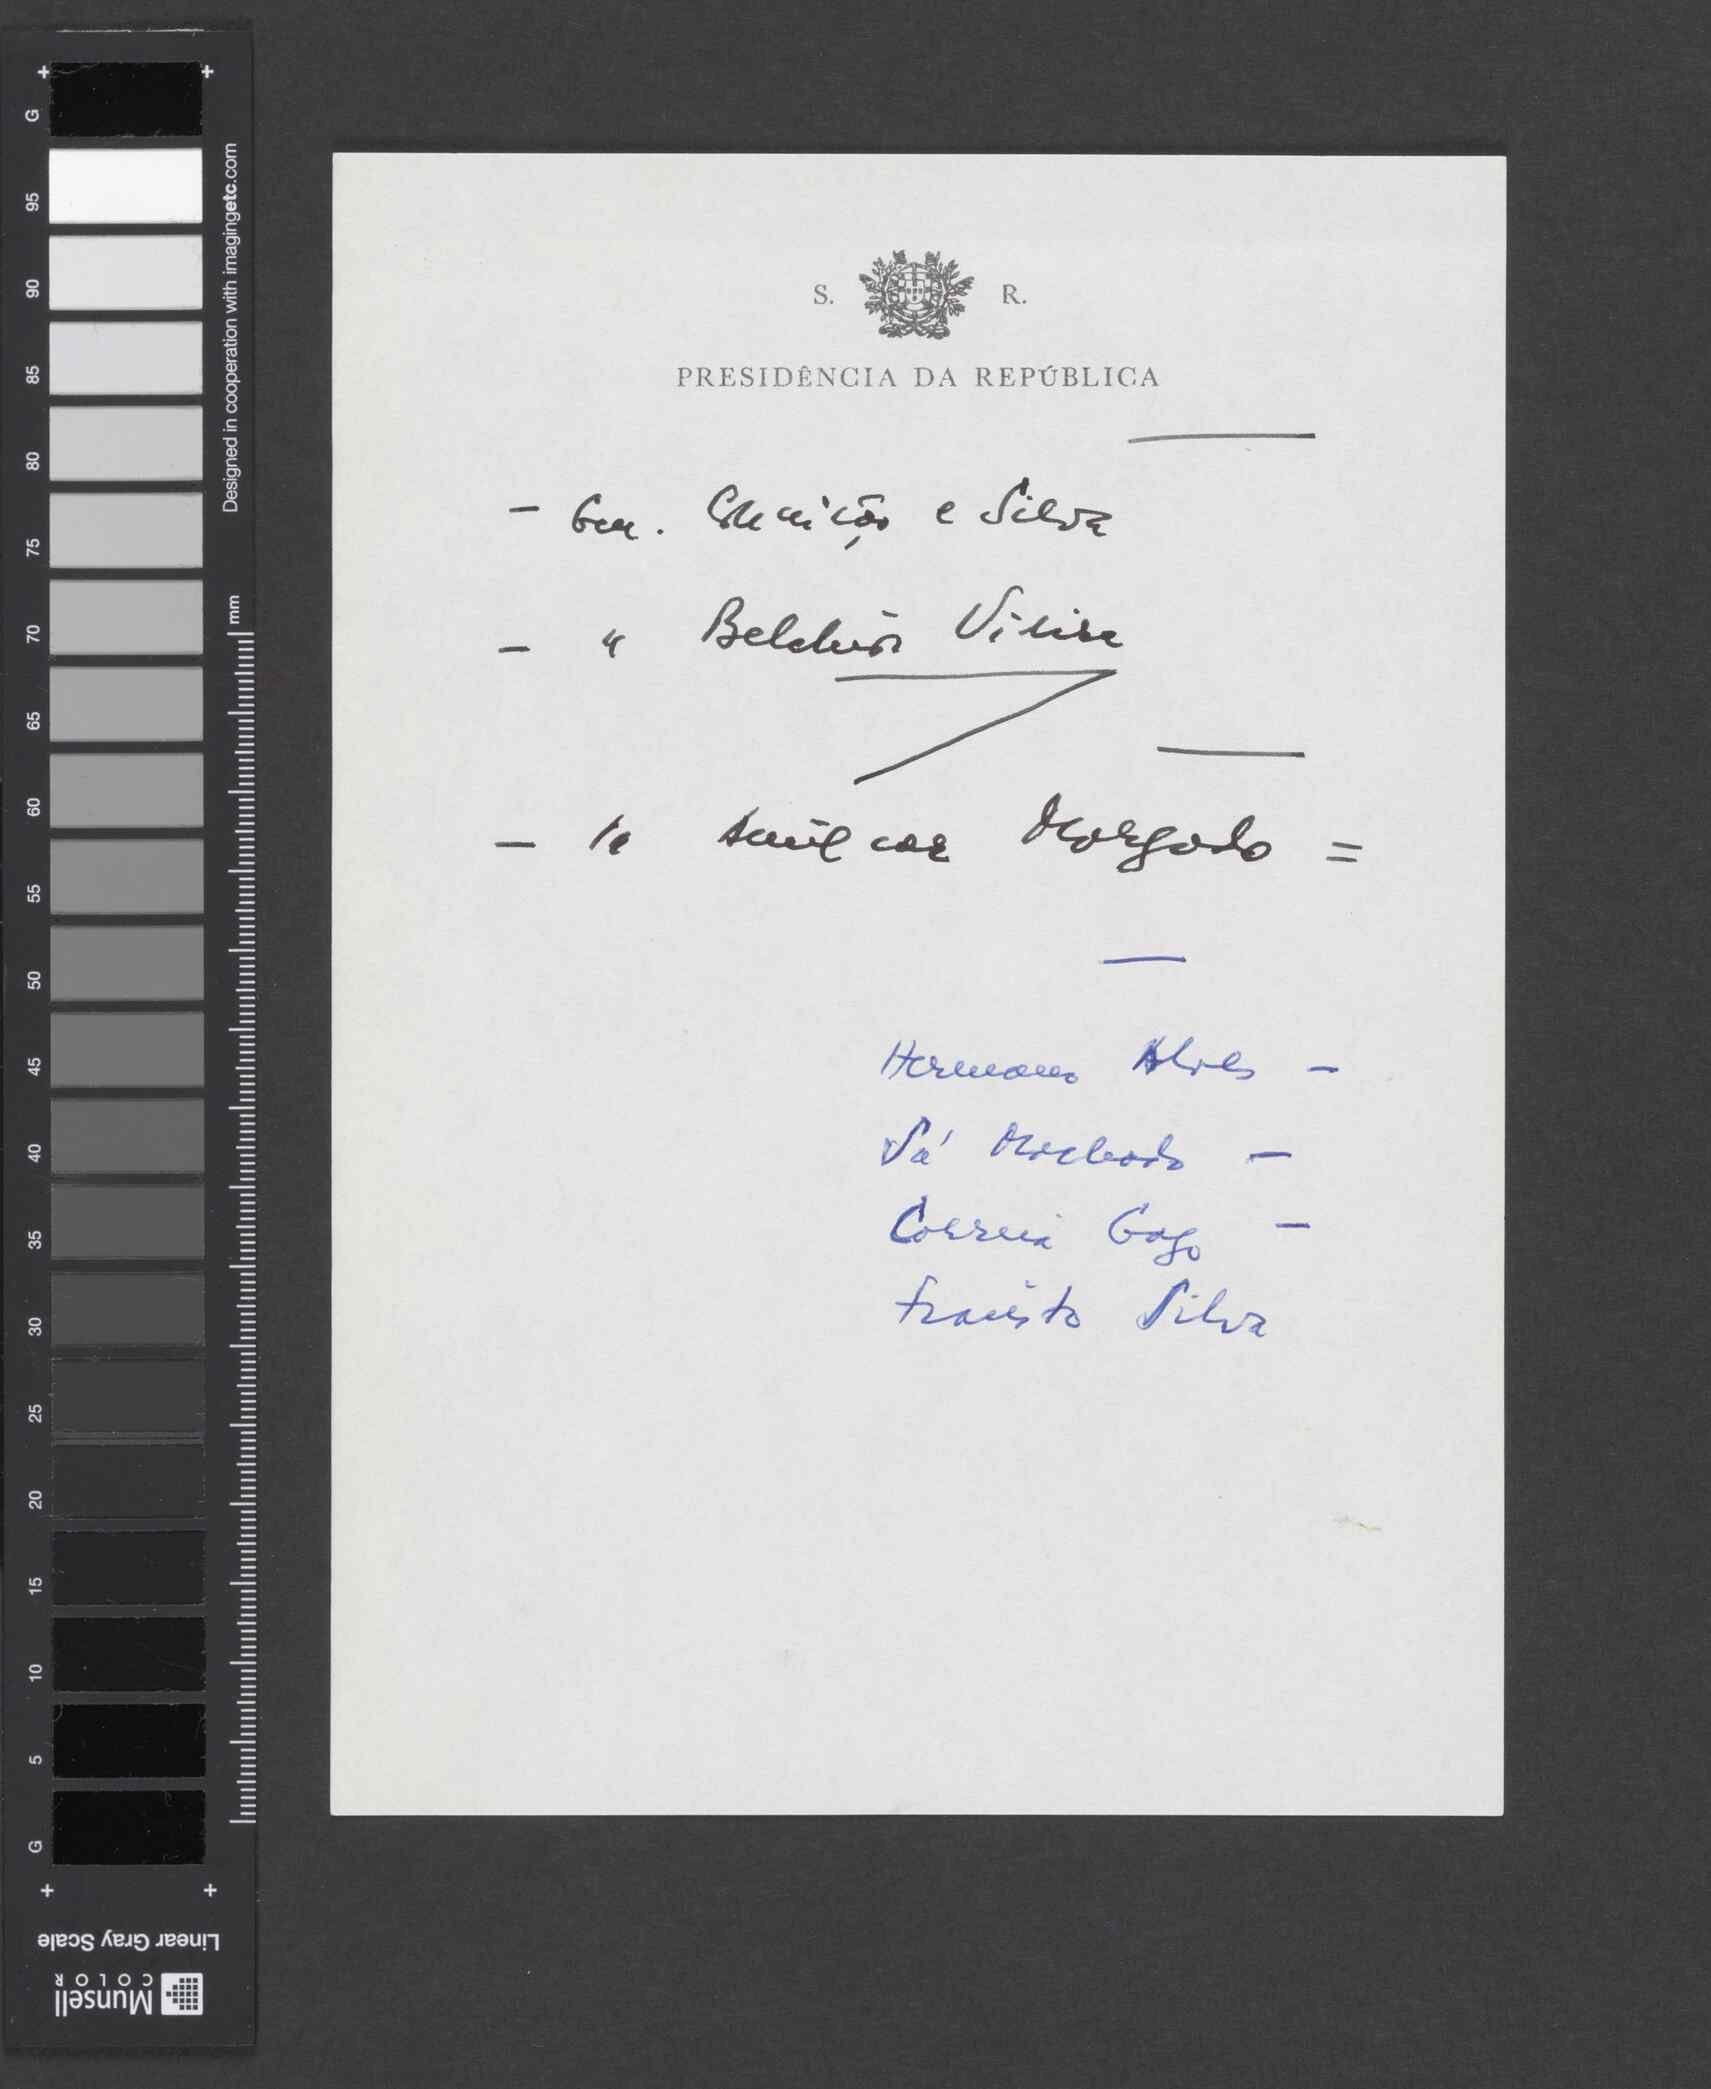 S. R.
PRESIDÊNCIA DA REPÚBLICA
- Gen. Conceição e Silva
- " Belchior Vieira
- " Amílcar Morgado =
Hermano Alves -
Sá Machado -
Correia Gago -
Fraústo Silva
G
95
90
85
80
75
70
65
60
55
50
45
40
35
30
25
20
15
10
5
G
Designed in cooperation with imagingetc.com
mm
Linear Gray Scale
Munsell
COLOR